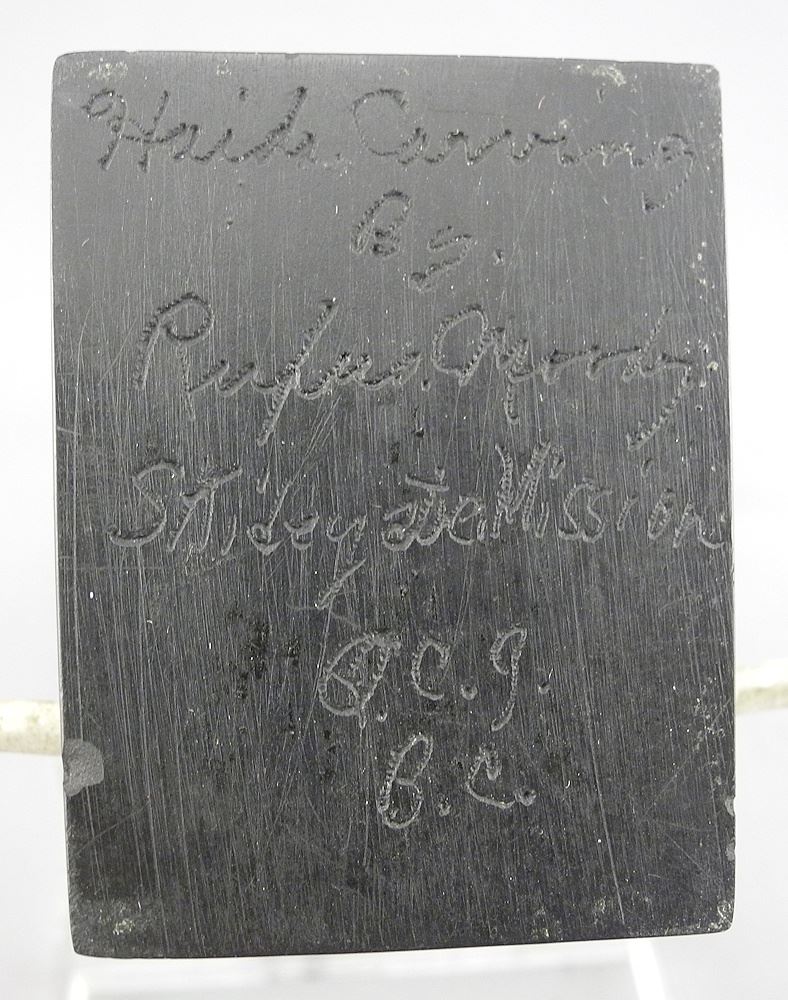 Haida. Carving
By.
Rufus. Moody
Skidegate Mission
Q.C.I.
B.C.